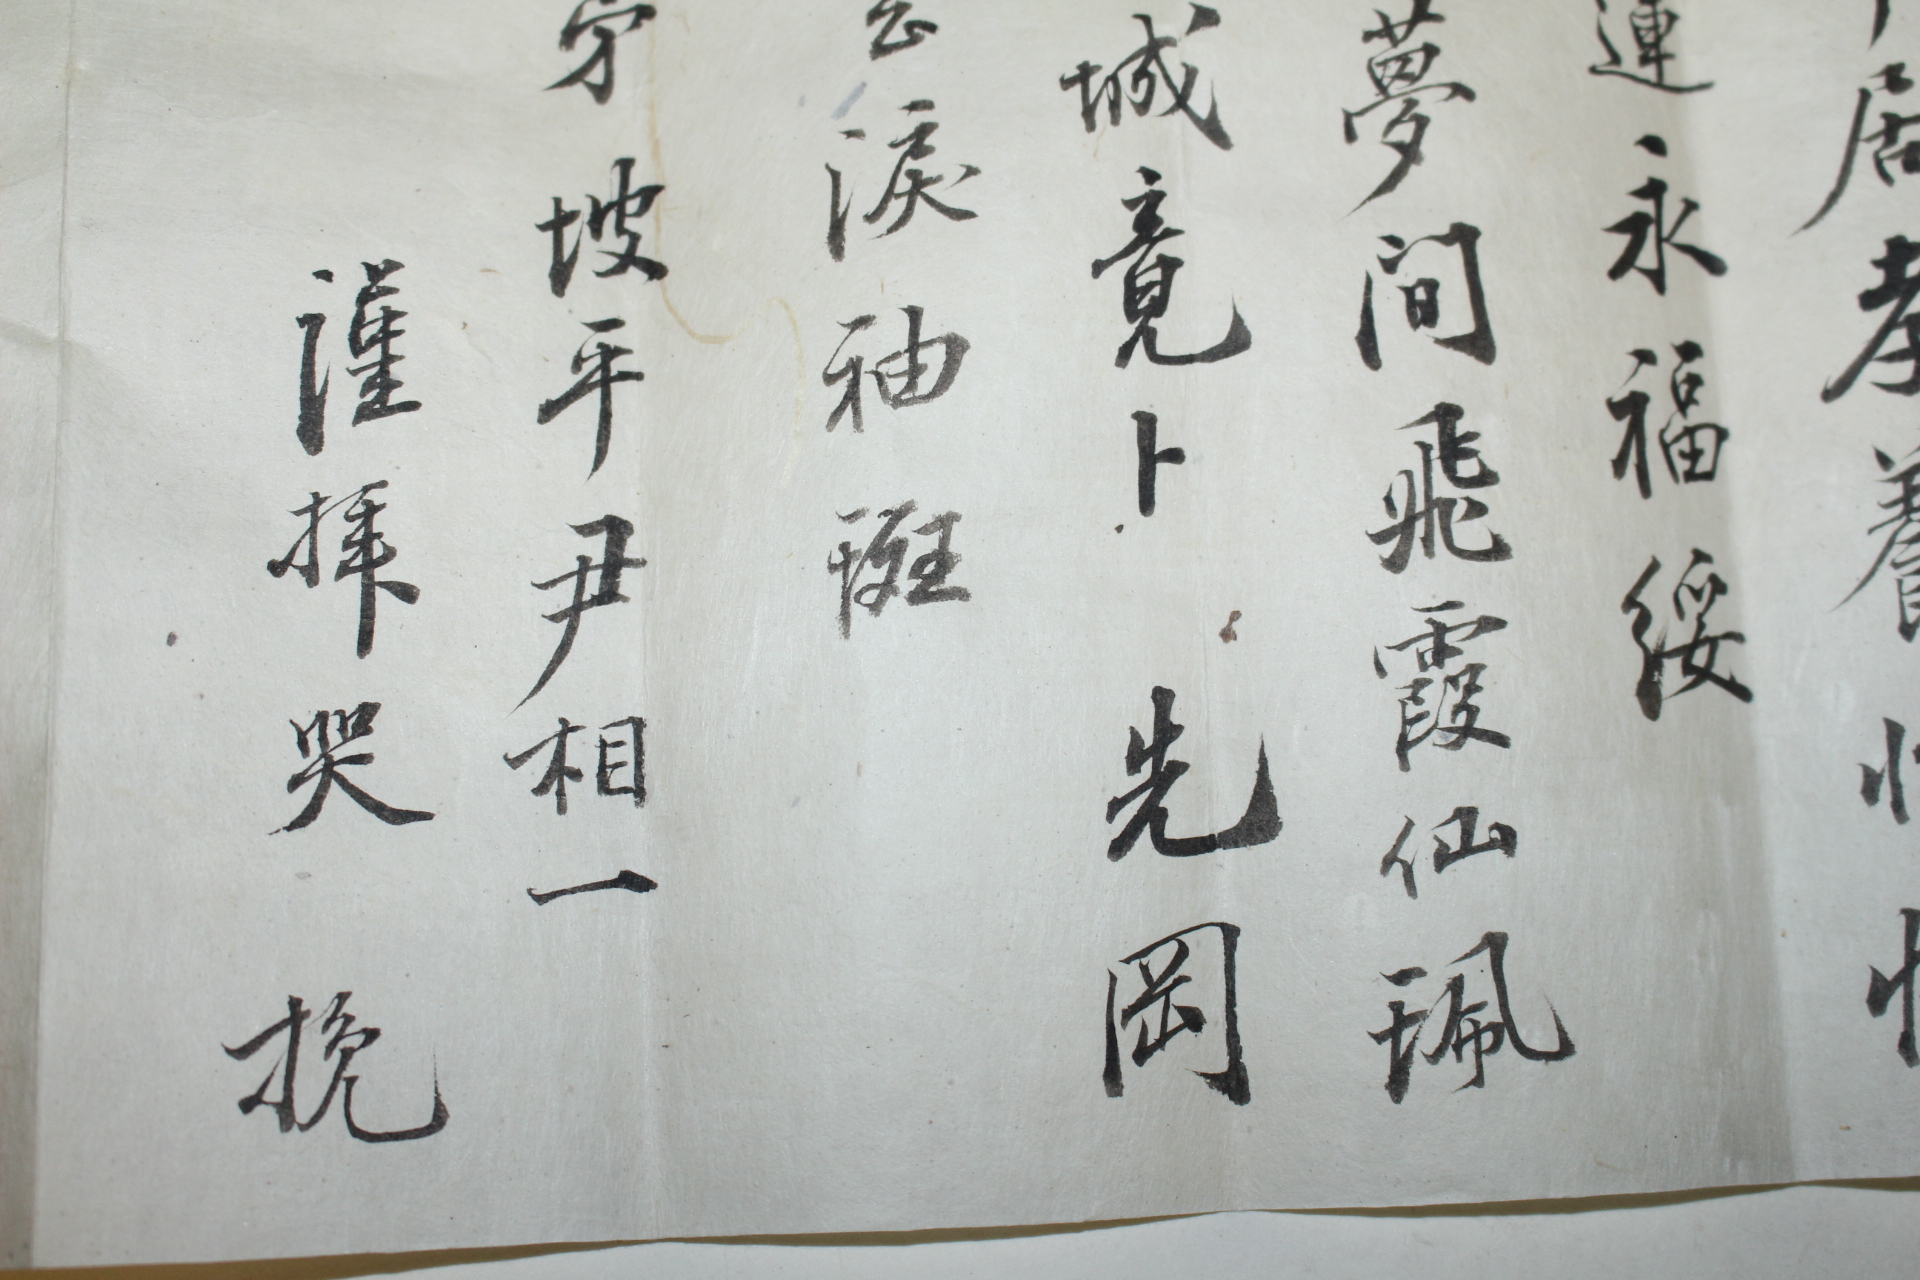 居孝養
連永福綏
夢間飛霞仙珮
城竟卜 先岡
淚袖斑
坡平尹相一
謹拜哭 挽